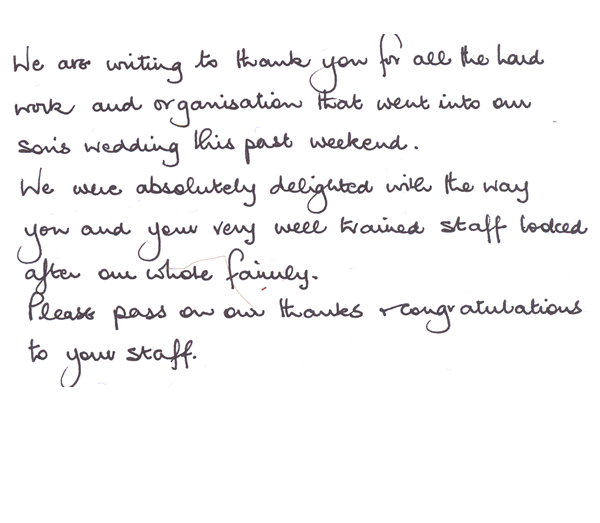 We are writing to thank you for all the hard
work and organisation that went into our
son's wedding this past weekend.
We were absolutely delighted with the way
you and your very well trained staff looked
after our whole family.
Please pass on our thanks + congratulations
to your staff.